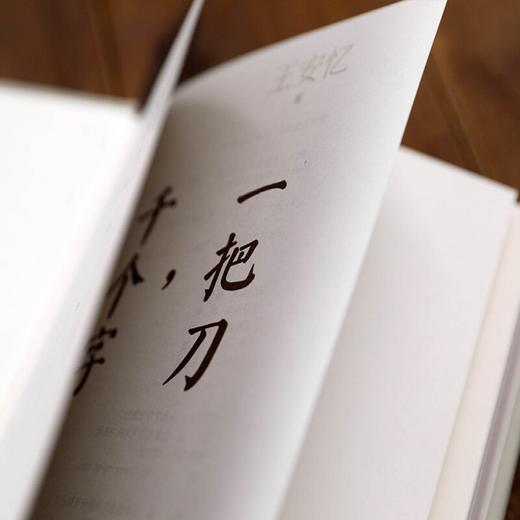 王安忆
一把刀，
千个字